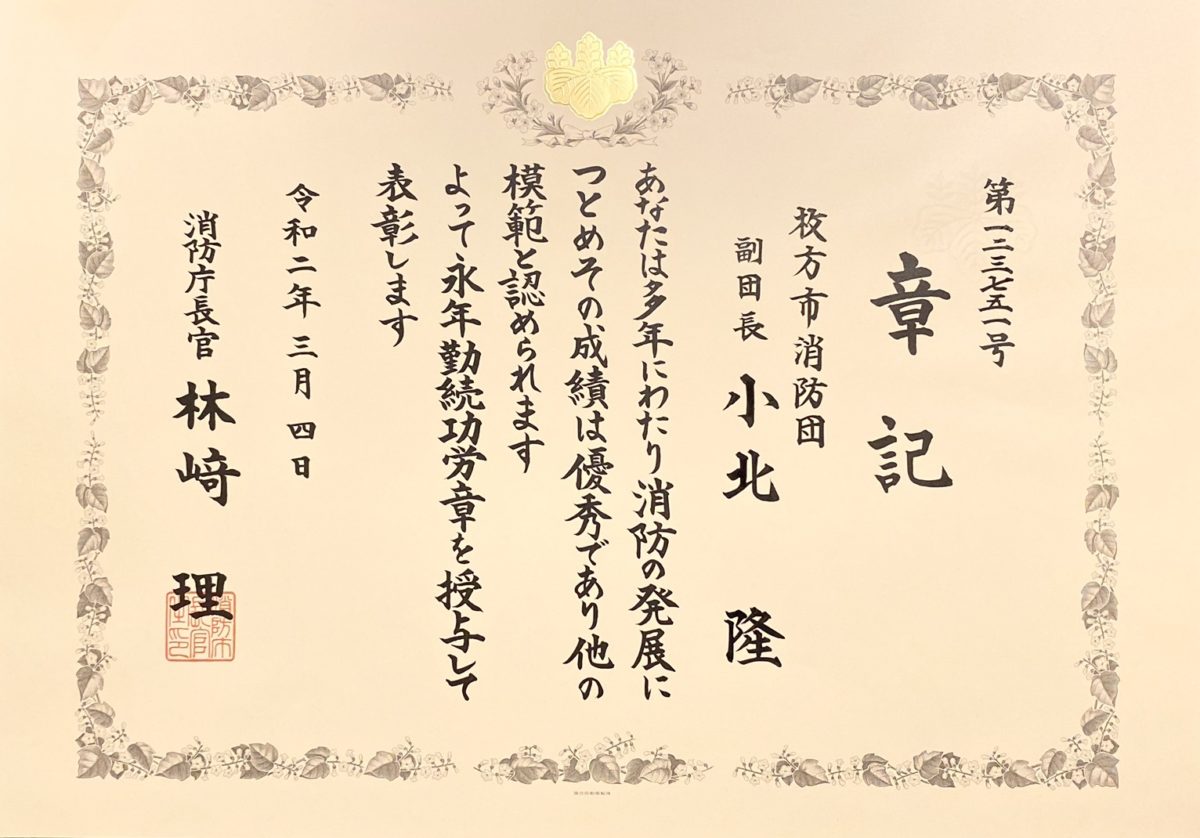 第一二三七五一号
章記
枚方市消防団
副団長 小北 隆
あなたは多年にわたり消防の発展に
つとめその成績は優秀であり他の
模範と認められます
よって永年勤続功労章を授与して
表彰します
令和二年三月四日
消防庁長官 林﨑 理